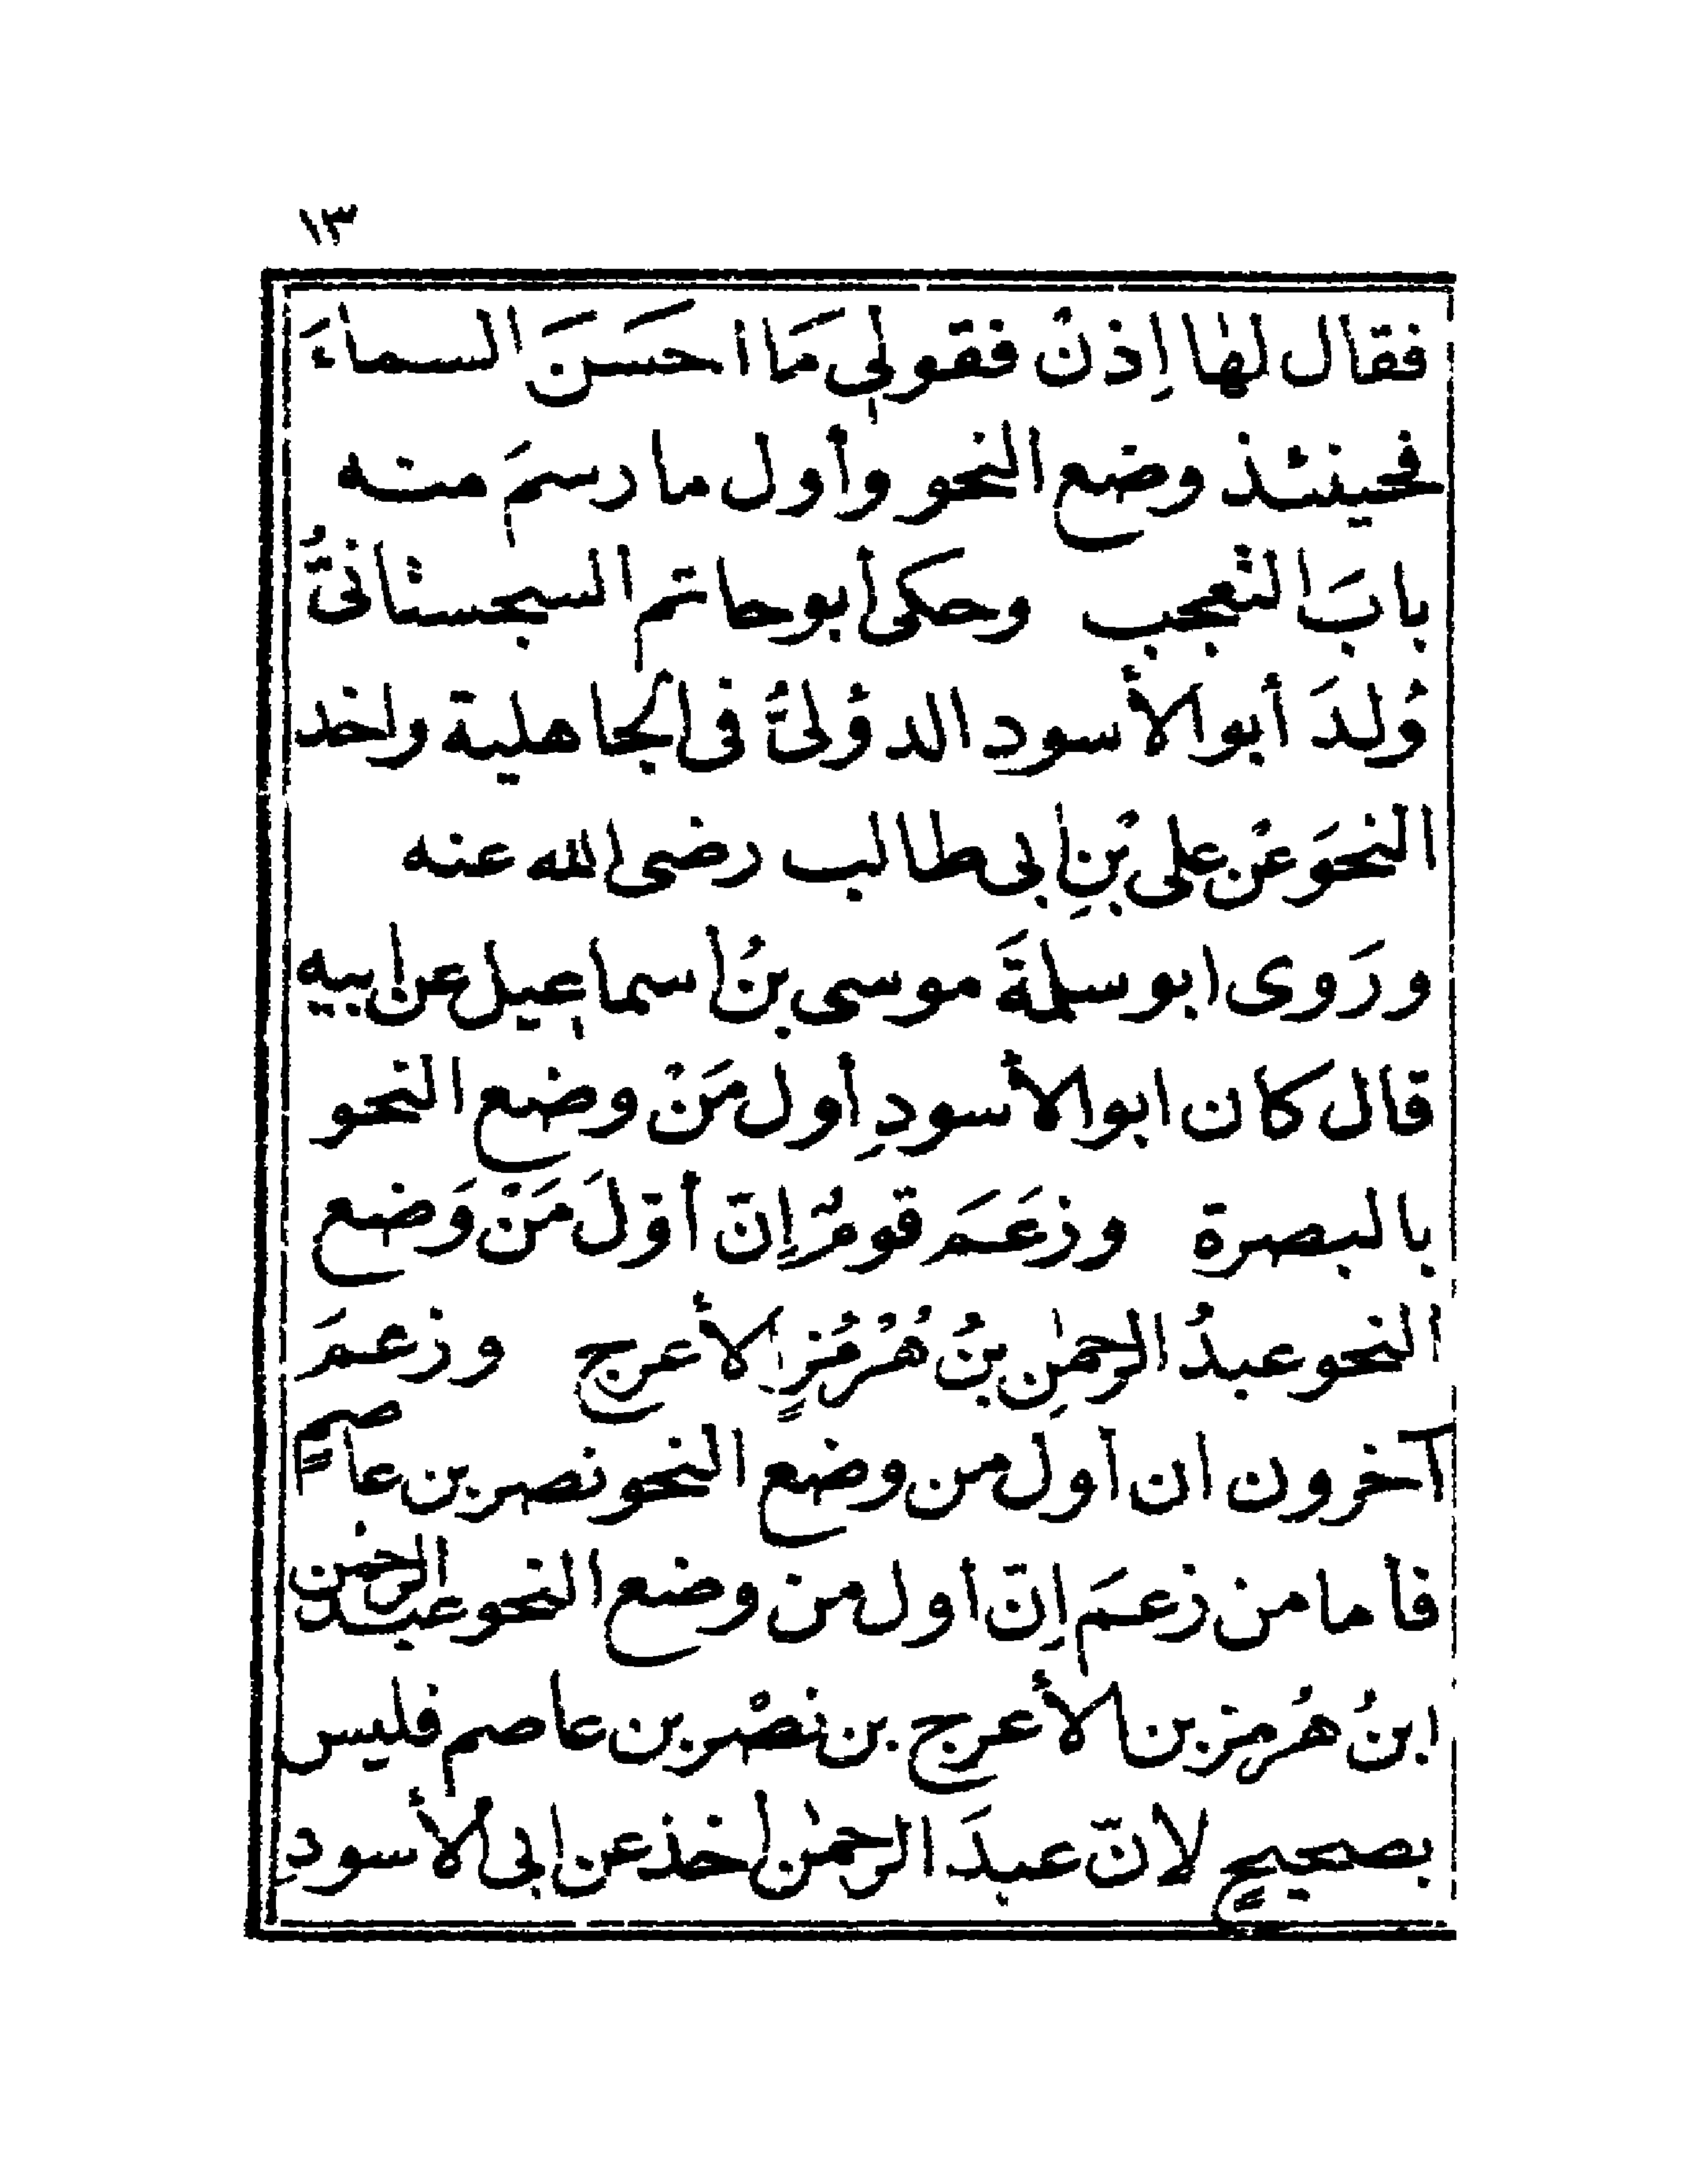 ١٣
فقال لها اِذنْ فقولِى مَا احسَنَ السماءَ
فحينئذ وضع النحو وأول ما رسمَ منه
بابَ التعجب وحكى أبو حاتم السجستانىُّ
وُلدَ أبو الأسود الدؤلىُّ فى الجاهلية واخذ
النحوَ عنْ على بْنِ ابى طالب رضى الله عنه
ورَوى ابو سلمةَ موسى بنُ اسماعيل عن ابيه
قال كان ابو الأسودِ أول مَنْ وضع النحو
بالبصرة وزعَمَ قومٌ إنّ أوّلَ مَنْ وَضع
النحو عبدُ الرحمٰنِ بنُ هُرْمُزٍ الأعرج وزعمَ
آخرون ان أول من وضع النحو نصر بن عاصمٍ
فأما من زعمَ إنّ أول من وضع النحو عبد الرحمٰن
ابنُ هُرمز بن الأعرج بن نصْر بن عاصم فليس
بصحيحٍ لانّ عبدَ الرحمٰن اخذ عن ابى الأسودِ